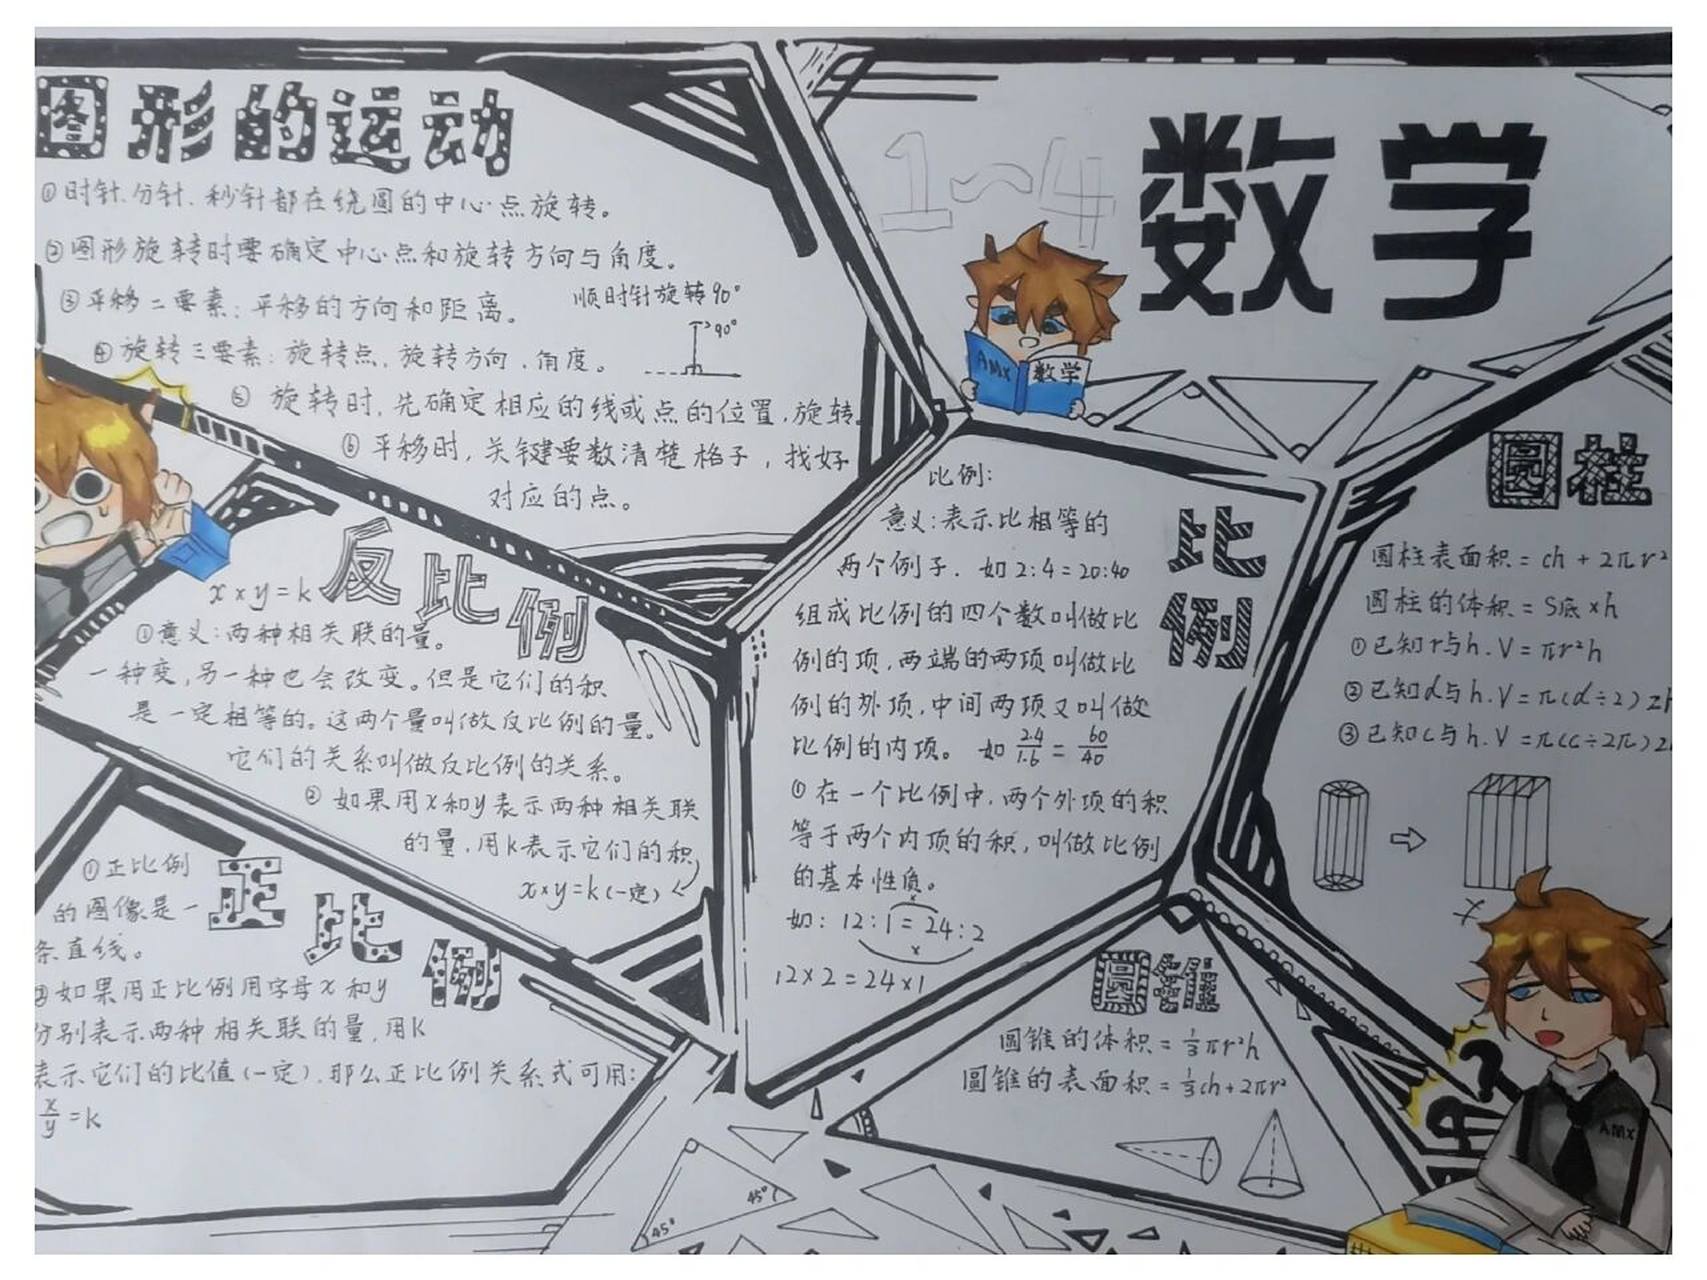 图形的运动
①时针、分针、秒针都在绕圆的中心点旋转。
②图形旋转时要确定中心点和旋转方向与角度。
③平移二要素：平移的方向和距离。
顺时针旋转90°
90°
④旋转三要素：旋转点，旋转方向，角度。
⑤旋转时，先确定相应的线或点的位置，旋转
⑥平移时，关键要数清楚格子，找好
对应的点。
1~4
数学
AMX
数学
反比例
x×y=k
①意义：两种相关联的量。
一种变，另一种也会改变。但是它们的积
是一定相等的。这两个量叫做反比例的量。
它们的关系叫做反比例的关系。
②如果用x和y表示两种相关联
的量，用k表示它们的积
x×y=k(一定)
正比例
①正比例
的图像是一
条直线。
②如果用正比例用字母x和y
分别表示两种相关联的量，用K
表示它们的比值(一定)，那么正比例关系式可用：
x/y=k
比例
比例：
意义：表示比相等的
两个例子．如2:4=20:40
组成比例的四个数叫做比
例的项，两端的两项叫做比
例的外项，中间两项又叫做
比例的内项。如2.4/1.6=60/40
①在一个比例中，两个外项的积
等于两个内项的积，叫做比例
的基本性质。
如：12:1=24:2
x
x
12×2=24×1
圆柱
圆柱表面积=ch+2πr²
圆柱的体积=S底×h
①已知r与h．V=πr²h
②已知d与h．V=π(d÷2)2h
③已知c与h．V=π(c÷2π)2
圆锥
圆锥的体积=1/3πr²h
圆锥的表面积=1/3ch+2πr²
45°
45°
AMX